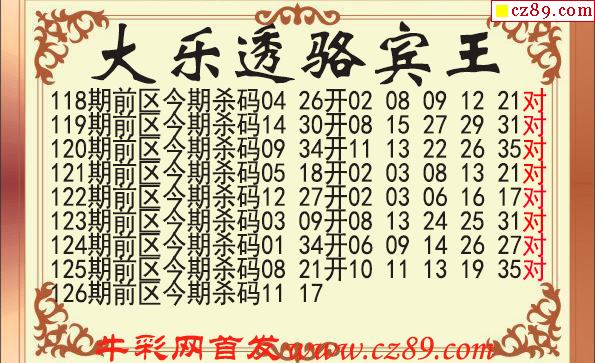 cz89.com
大乐透骆宾王
118期前区今期杀码04 26开02 08 09 12 21对
119期前区今期杀码14 30开08 15 27 29 31对
120期前区今期杀码09 34开11 13 22 26 35对
121期前区今期杀码05 18开02 03 08 13 21对
122期前区今期杀码12 27开02 03 06 16 17对
123期前区今期杀码03 09开08 13 24 25 31对
124期前区今期杀码01 34开06 09 14 26 27对
125期前区今期杀码08 21开10 11 13 19 35对
126期前区今期杀码11 17
牛彩网首发www.cz89.com